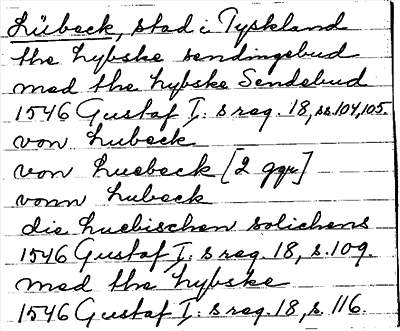 Lübeck, stad i Tyskland
the lybske sendingebud
med the lybske Sendebud
1546 Gustaf I: s reg. 18, ss. 104, 105.
von Lubeck
von Luebeck [2 ggr]
vonn Lubeck
die Luebischen solichens
1546 Gustaf I: s reg. 18, s. 109.
med the lybske
1546 Gustaf I: s reg. 18, s. 116.